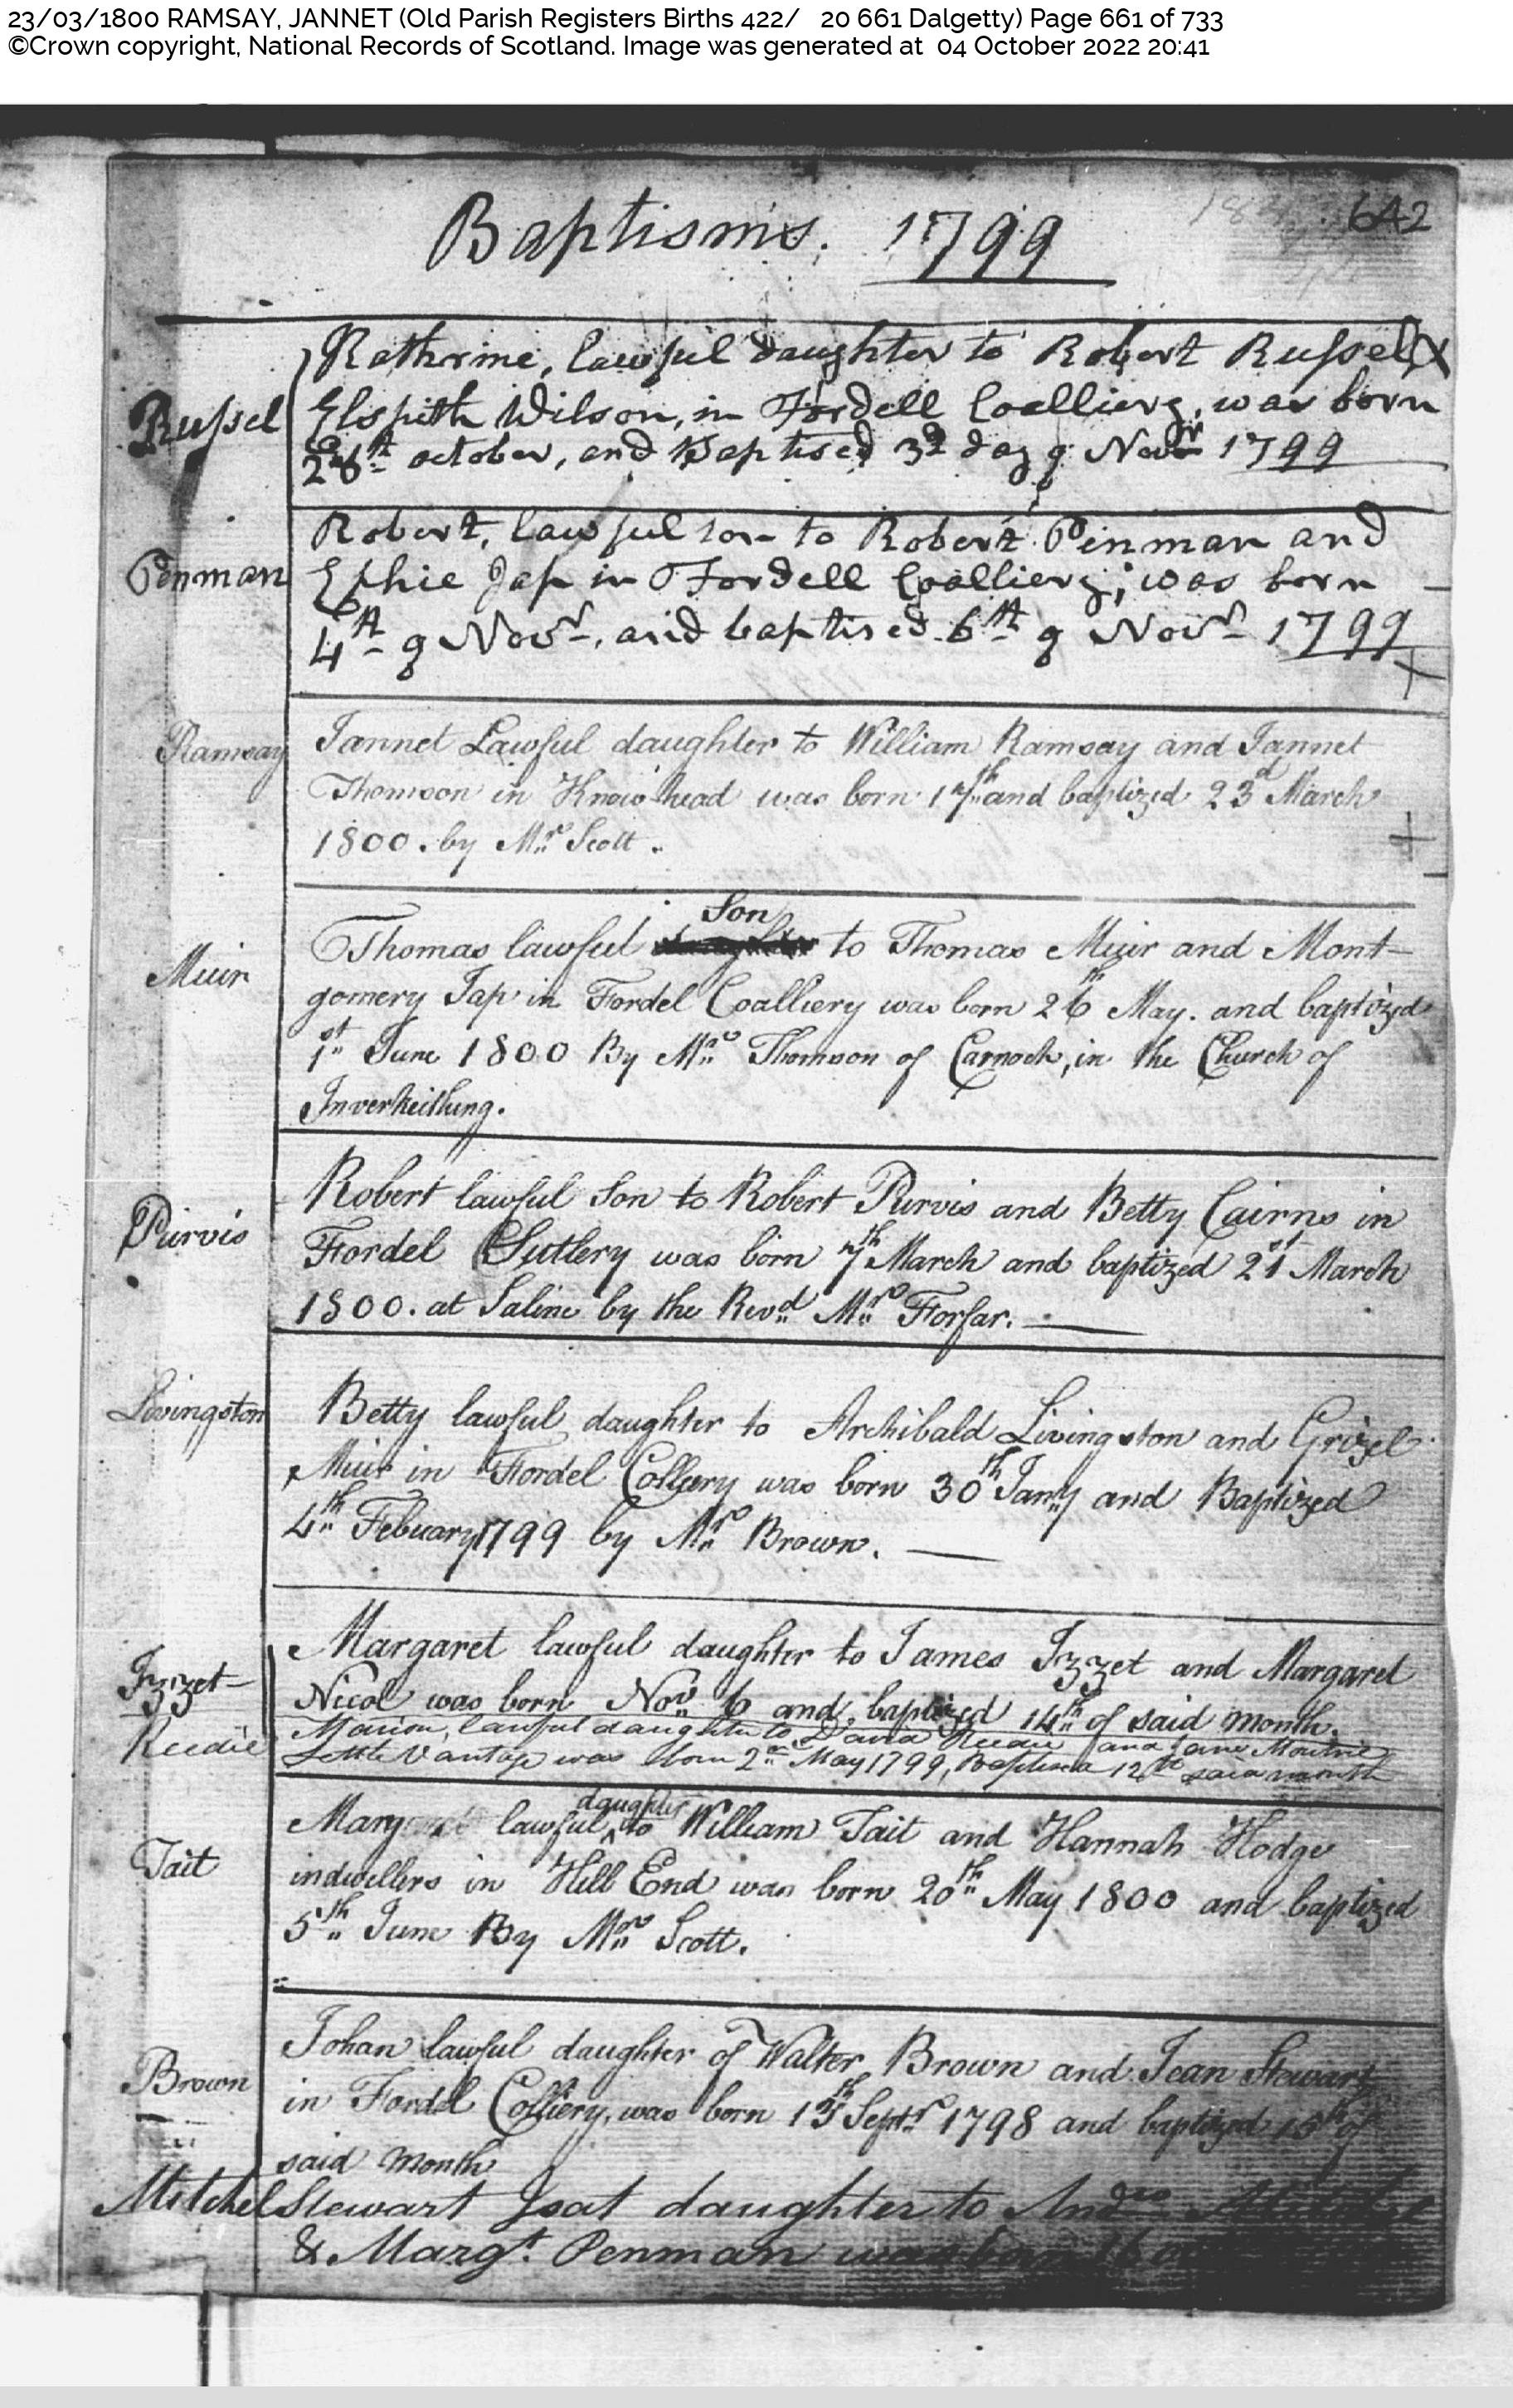 23/03/1800 RAMSAY, JANNET (Old Parish Registers Births 422/ 20 661 Dalgetty) Page 661 of 733
©Crown copyright, National Records of Scotland. Image was generated at 04 October 2022 20:41
Baptisms. 1799
642
Russel
Kathrine, lawful daughter to Robert Russel &
Elspith Wilson, in Fordell Coalliery, was born
28th october, and Baptised 3d day of Novr 1799
Penman
Robert, lawful son to Robert Penman and
Ephie Jap in Fordell Coalliery; was born
4th of Novr, and baptised 6th of Novr 1799
Ramsay
Jannet Lawful daughter to William Ramsay and Jannet
Thomson in Know head was born 17th and baptized 23d March
1800. by Mr Scott.
Muir
Son
Thomas lawful to Thomas Muir and Mont-
gomery Jap in Fordel Coalliery was born 26th May. and baptized
1st June 1800 By Mr Thomson of Carnock, in the Church of
Inverkeithing.
Purvis
Robert lawful Son to Robert Purvis and Betty Cairns in
Fordel Sutlery was born 7th March and baptized 21st March
1800. at Saline by the Revd Mr Forfar.
Livingston
Betty lawful daughter to Archibald Livingston and Grizel
Muir in Fordel Colliery was born 30th Jany and Baptized
4th Febuary 1799 by Mr Brown.
Izzet
Margaret lawful daughter to James Izzet and Margaret
Nicol was born Novr 6 and baptized 14th of said month.
Reedie
Marion, lawful daughter to David Reedie and Jane Moutrie
Little Vantage was born 2nd May 1799, Baptised 12th said month
Tait
daughter
Mary lawful to William Tait and Hannah Hodge
indwellers in Hill End was born 20th May 1800 and baptized
5th June By Mr Scott.
Brown
Johan lawful daughter of Walter Brown and Jean Stewart
in Fordel Colliery, was born 13th Septr 1798 and baptized 15th of
said month
Mitchel
Stewart Jsat daughter to Andw
& Margt. Penman was born 16